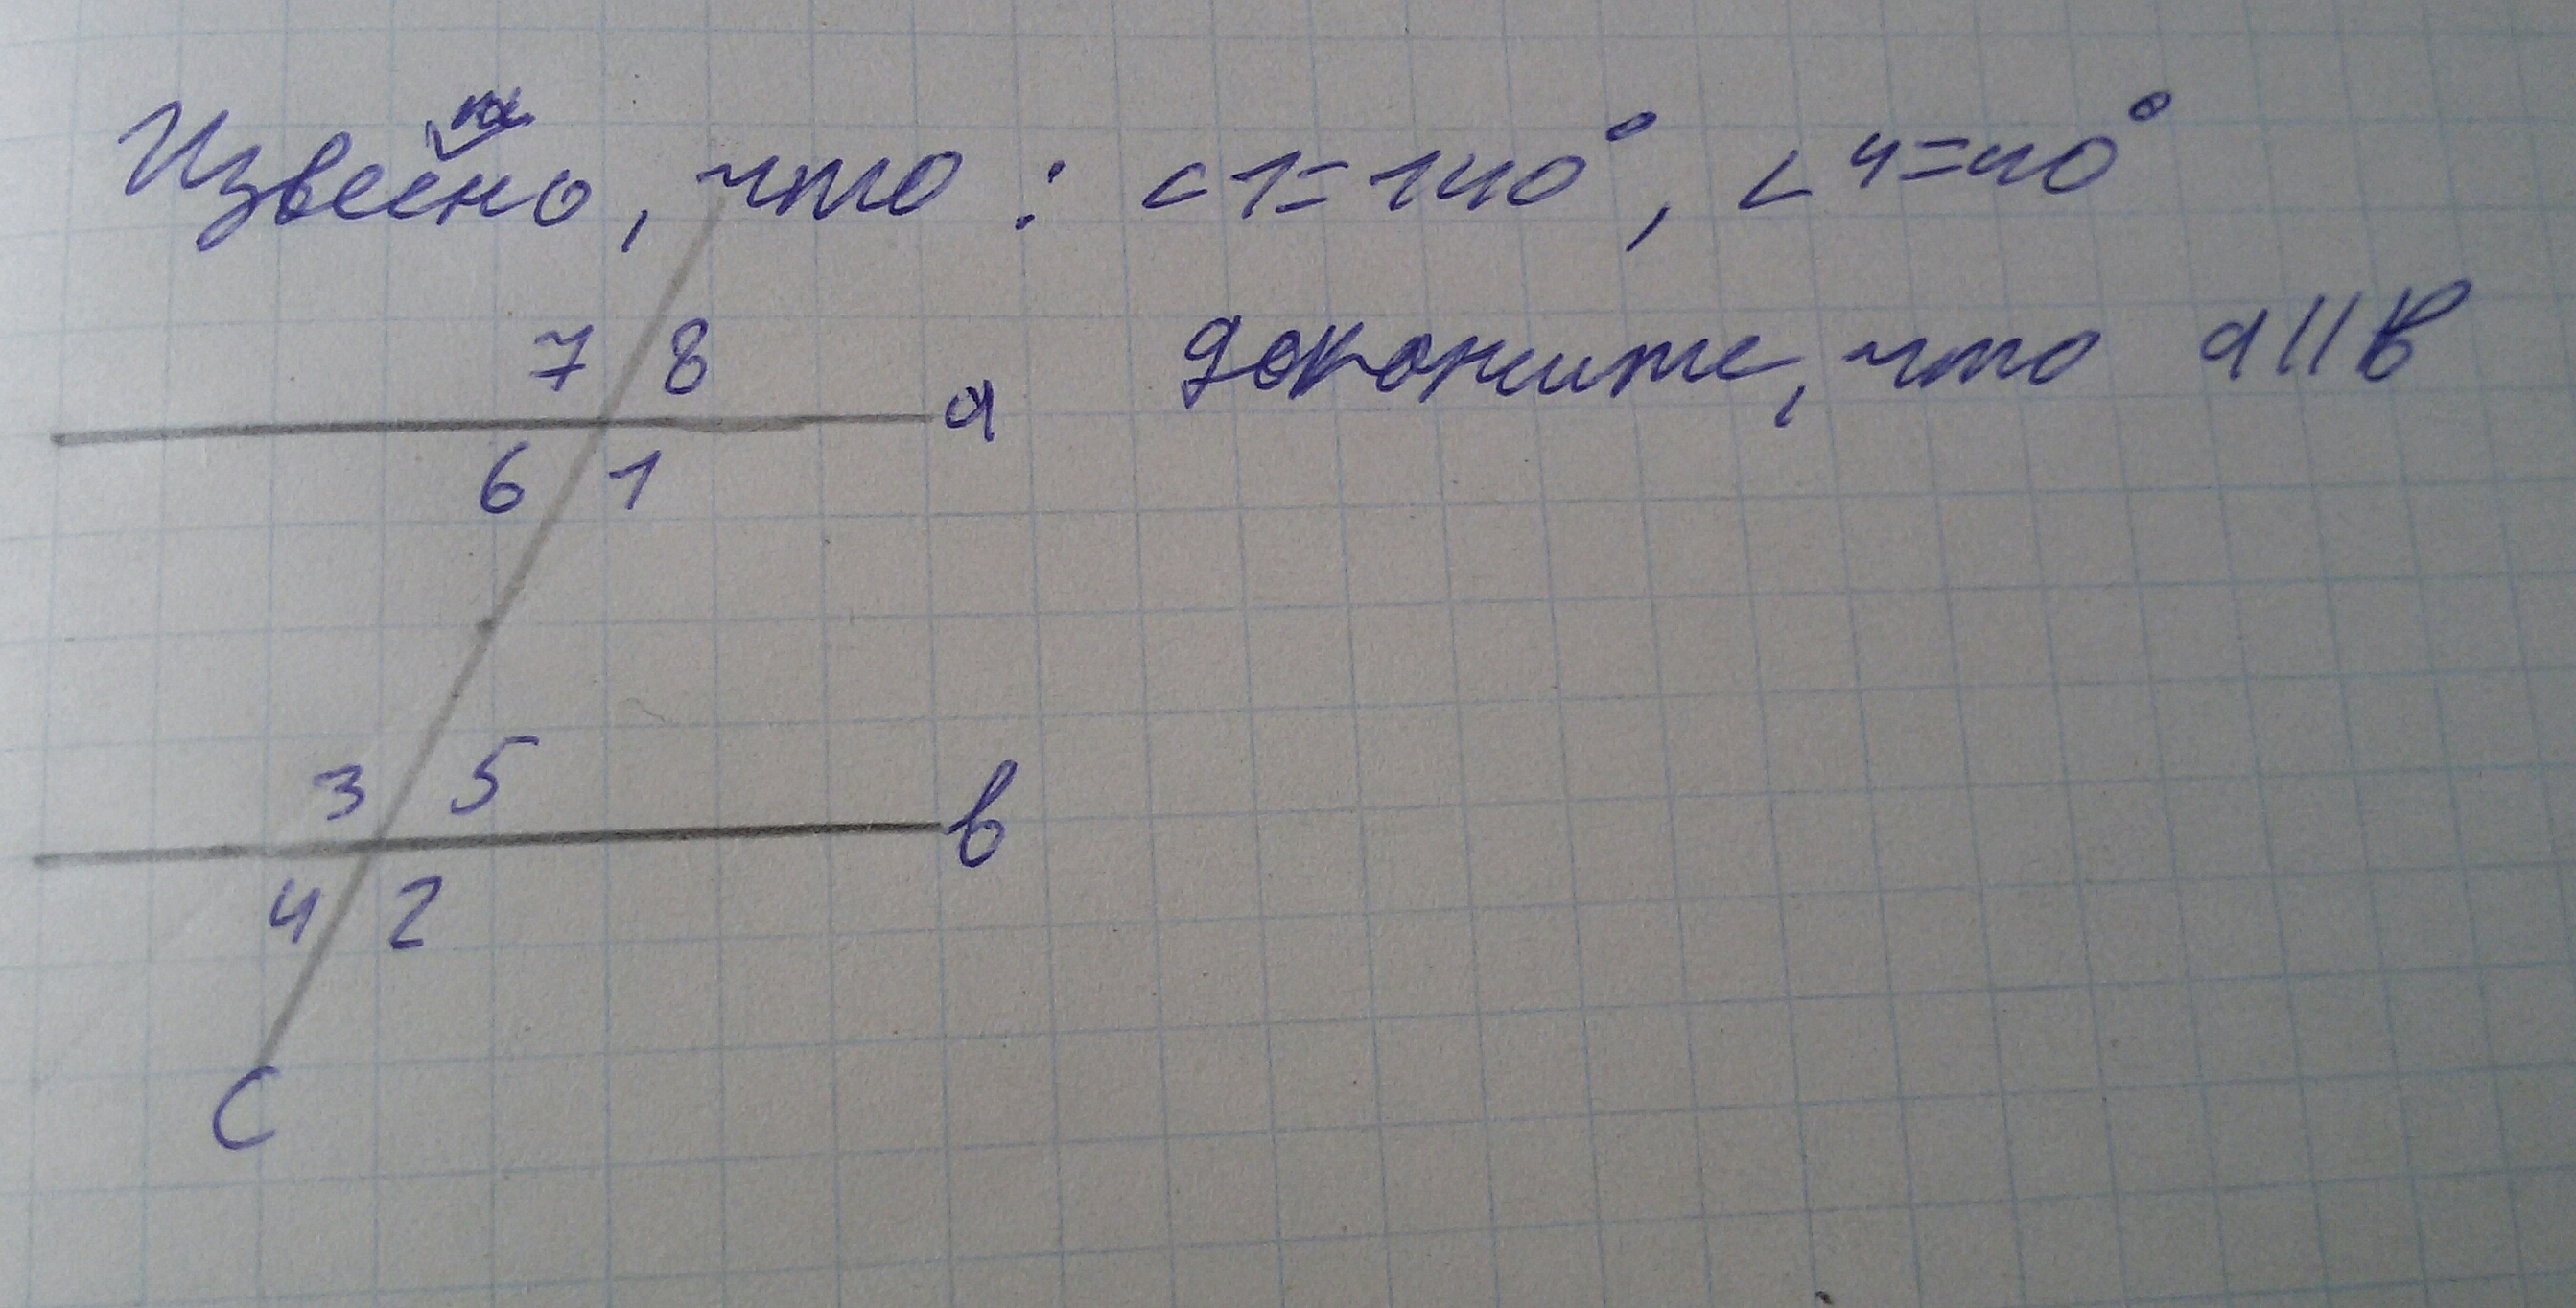 Известно, что: <1=140°, <4=40°
7 8
a докажите, что a||b
6 1
3 5
b
4 2
C